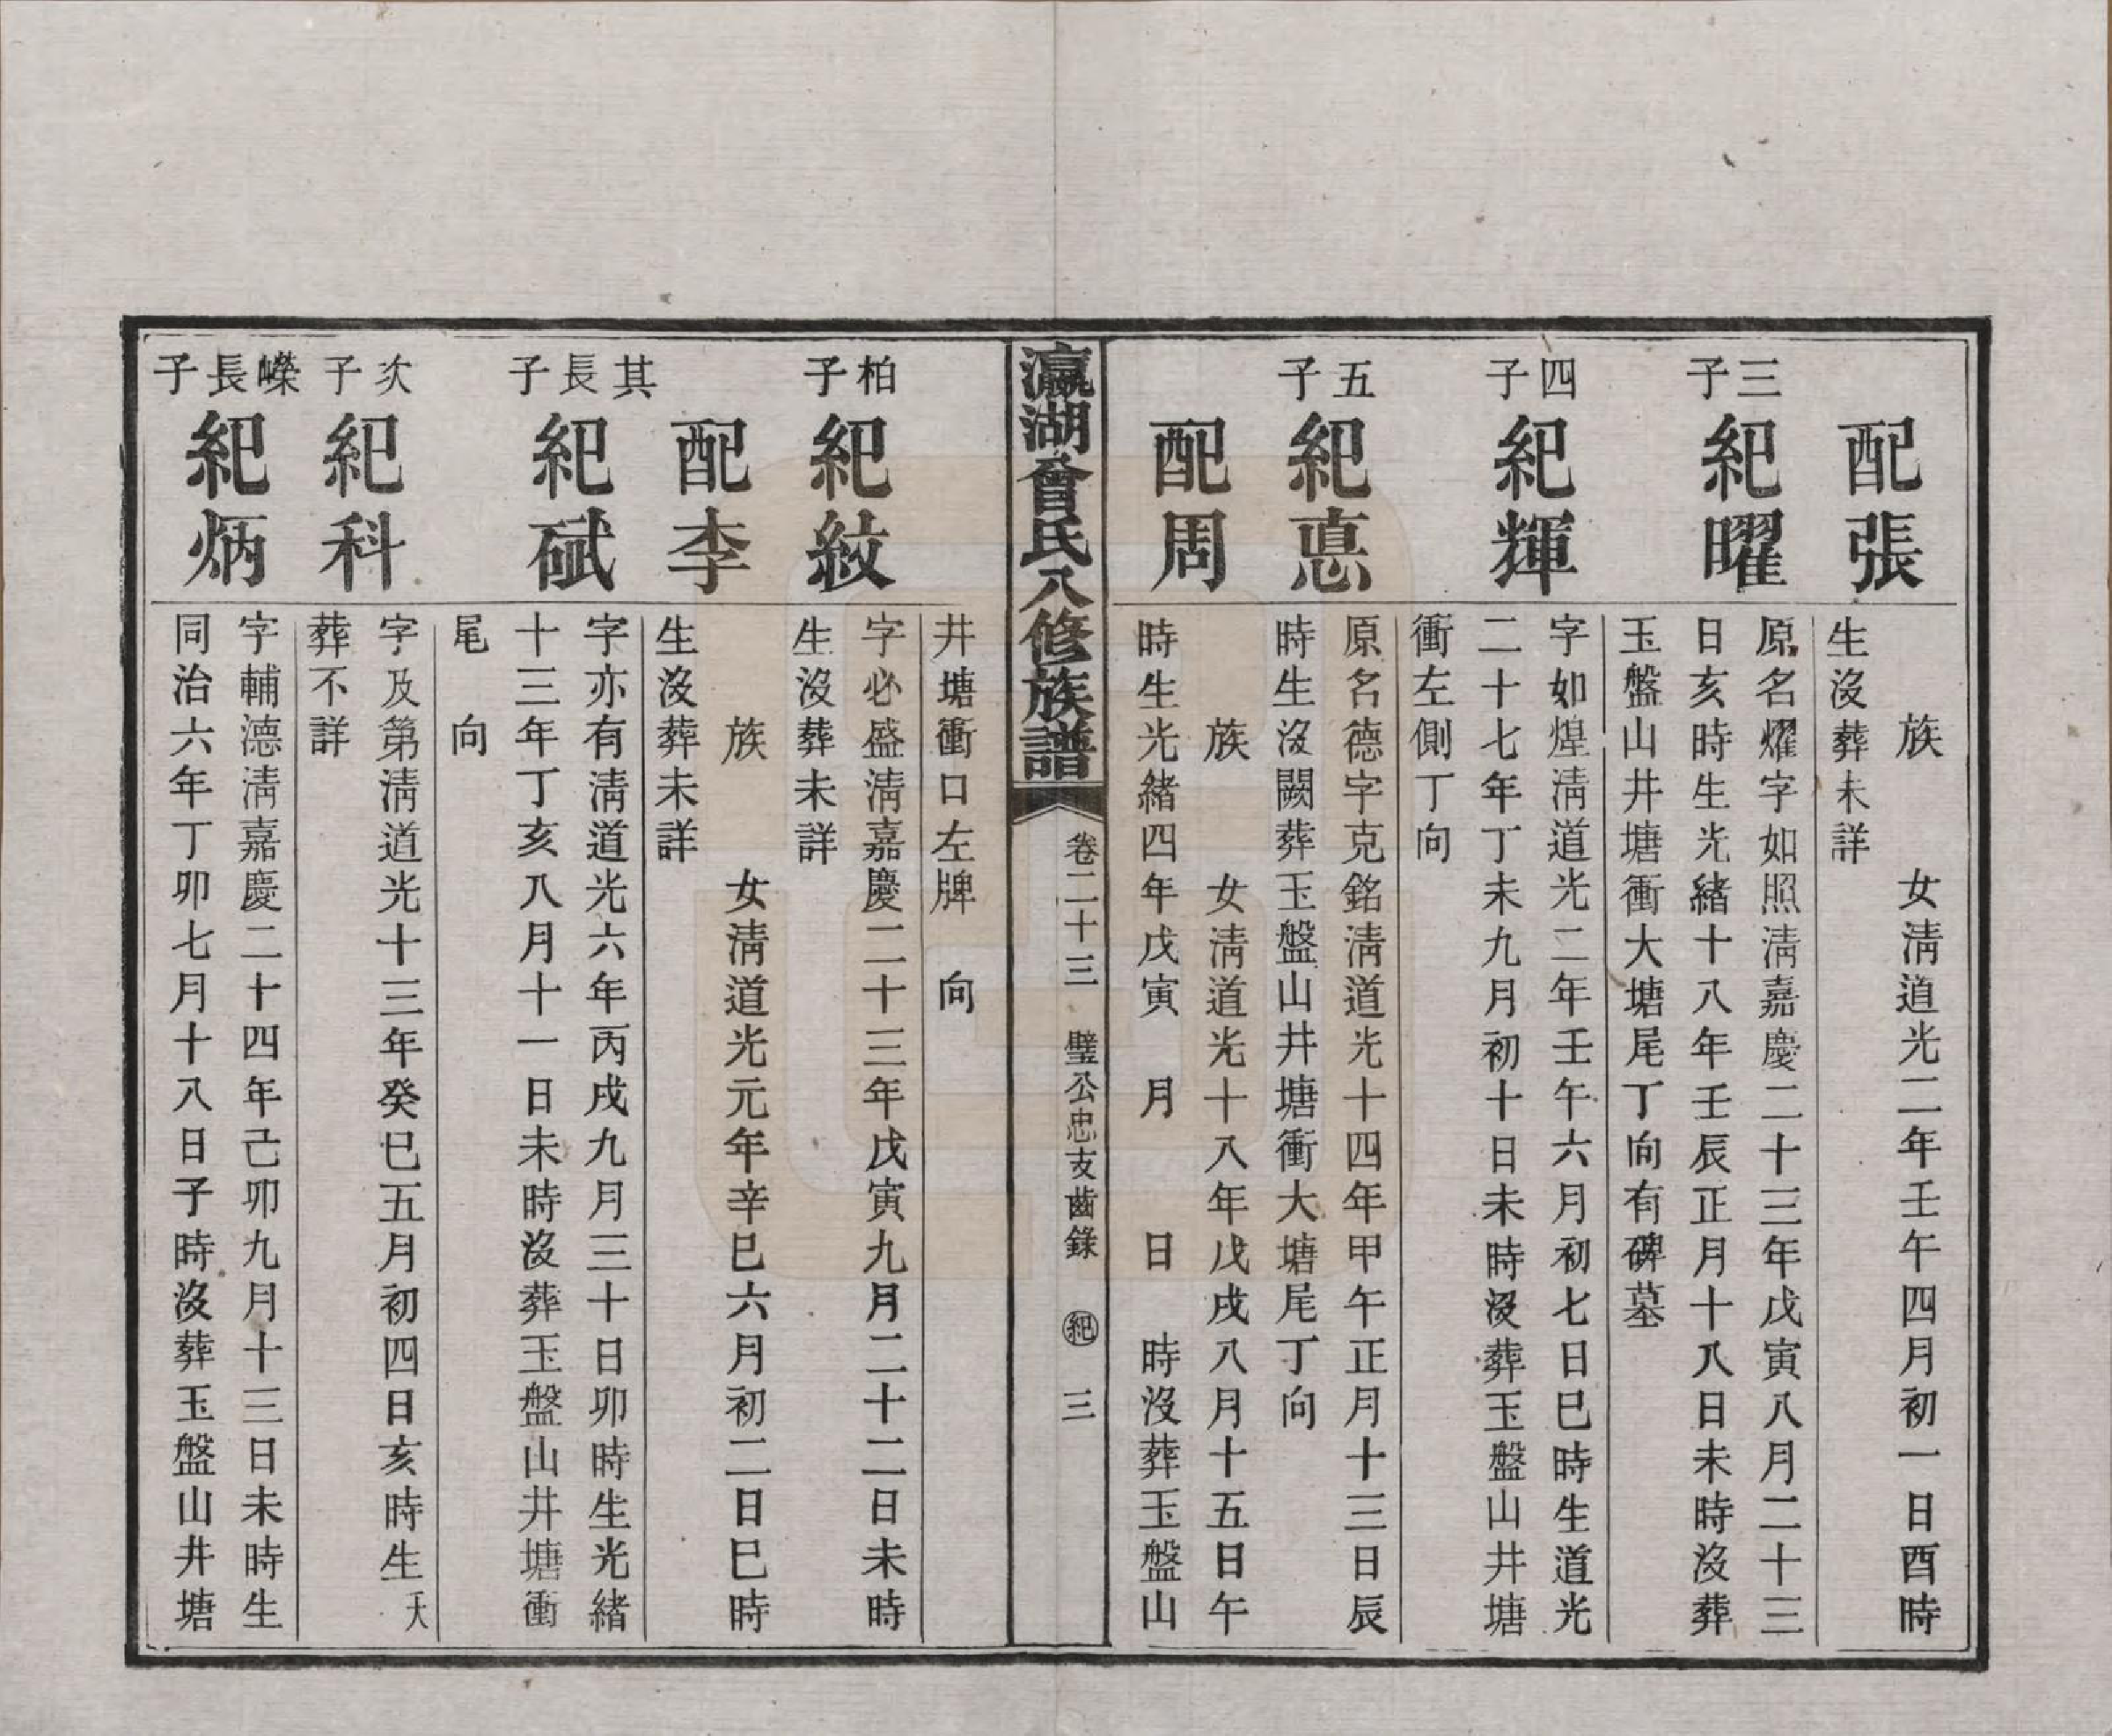 配張
族　女淸道光二年壬午四月初一日酉時
生沒葬未詳
三子
紀曜
原名燿字如照淸嘉慶二十三年戊寅八月二十三
日亥時生光緖十八年壬辰正月十八日未時沒葬
玉盤山井塘衝大塘尾丁向有碑墓
四子
紀輝
字如煌淸道光二年壬午六月初七日巳時生道光
二十七年丁未九月初十日未時沒葬玉盤山井塘
衝左側丁向
五子
紀悳
原名德字克銘淸道光十四年甲午正月十三日辰
時生沒闕葬玉盤山井塘衝大塘尾丁向
配周
族　女淸道光十八年戊戌八月十五日午
時生光緖四年戊寅　月　日　時沒葬玉盤山
瀛湖會氏八修族譜
卷二十三　璧公忠支齒錄　紀　三
井塘衝口左牌　向
柏子
紀紋
字必盛淸嘉慶二十三年戊寅九月二十二日未時
生沒葬未詳
配李
族　女淸道光元年辛巳六月初二日巳時
生沒葬未詳
其長子
紀碔
字亦有淸道光六年丙戌九月三十日卯時生光緖
十三年丁亥八月十一日未時沒葬玉盤山井塘衝
尾　向
次子
紀科
字及第淸道光十三年癸巳五月初四日亥時生夭
葬不詳
嶸長子
紀炳
字輔德淸嘉慶二十四年己卯九月十三日未時生
同治六年丁卯七月十八日子時沒葬玉盤山井塘